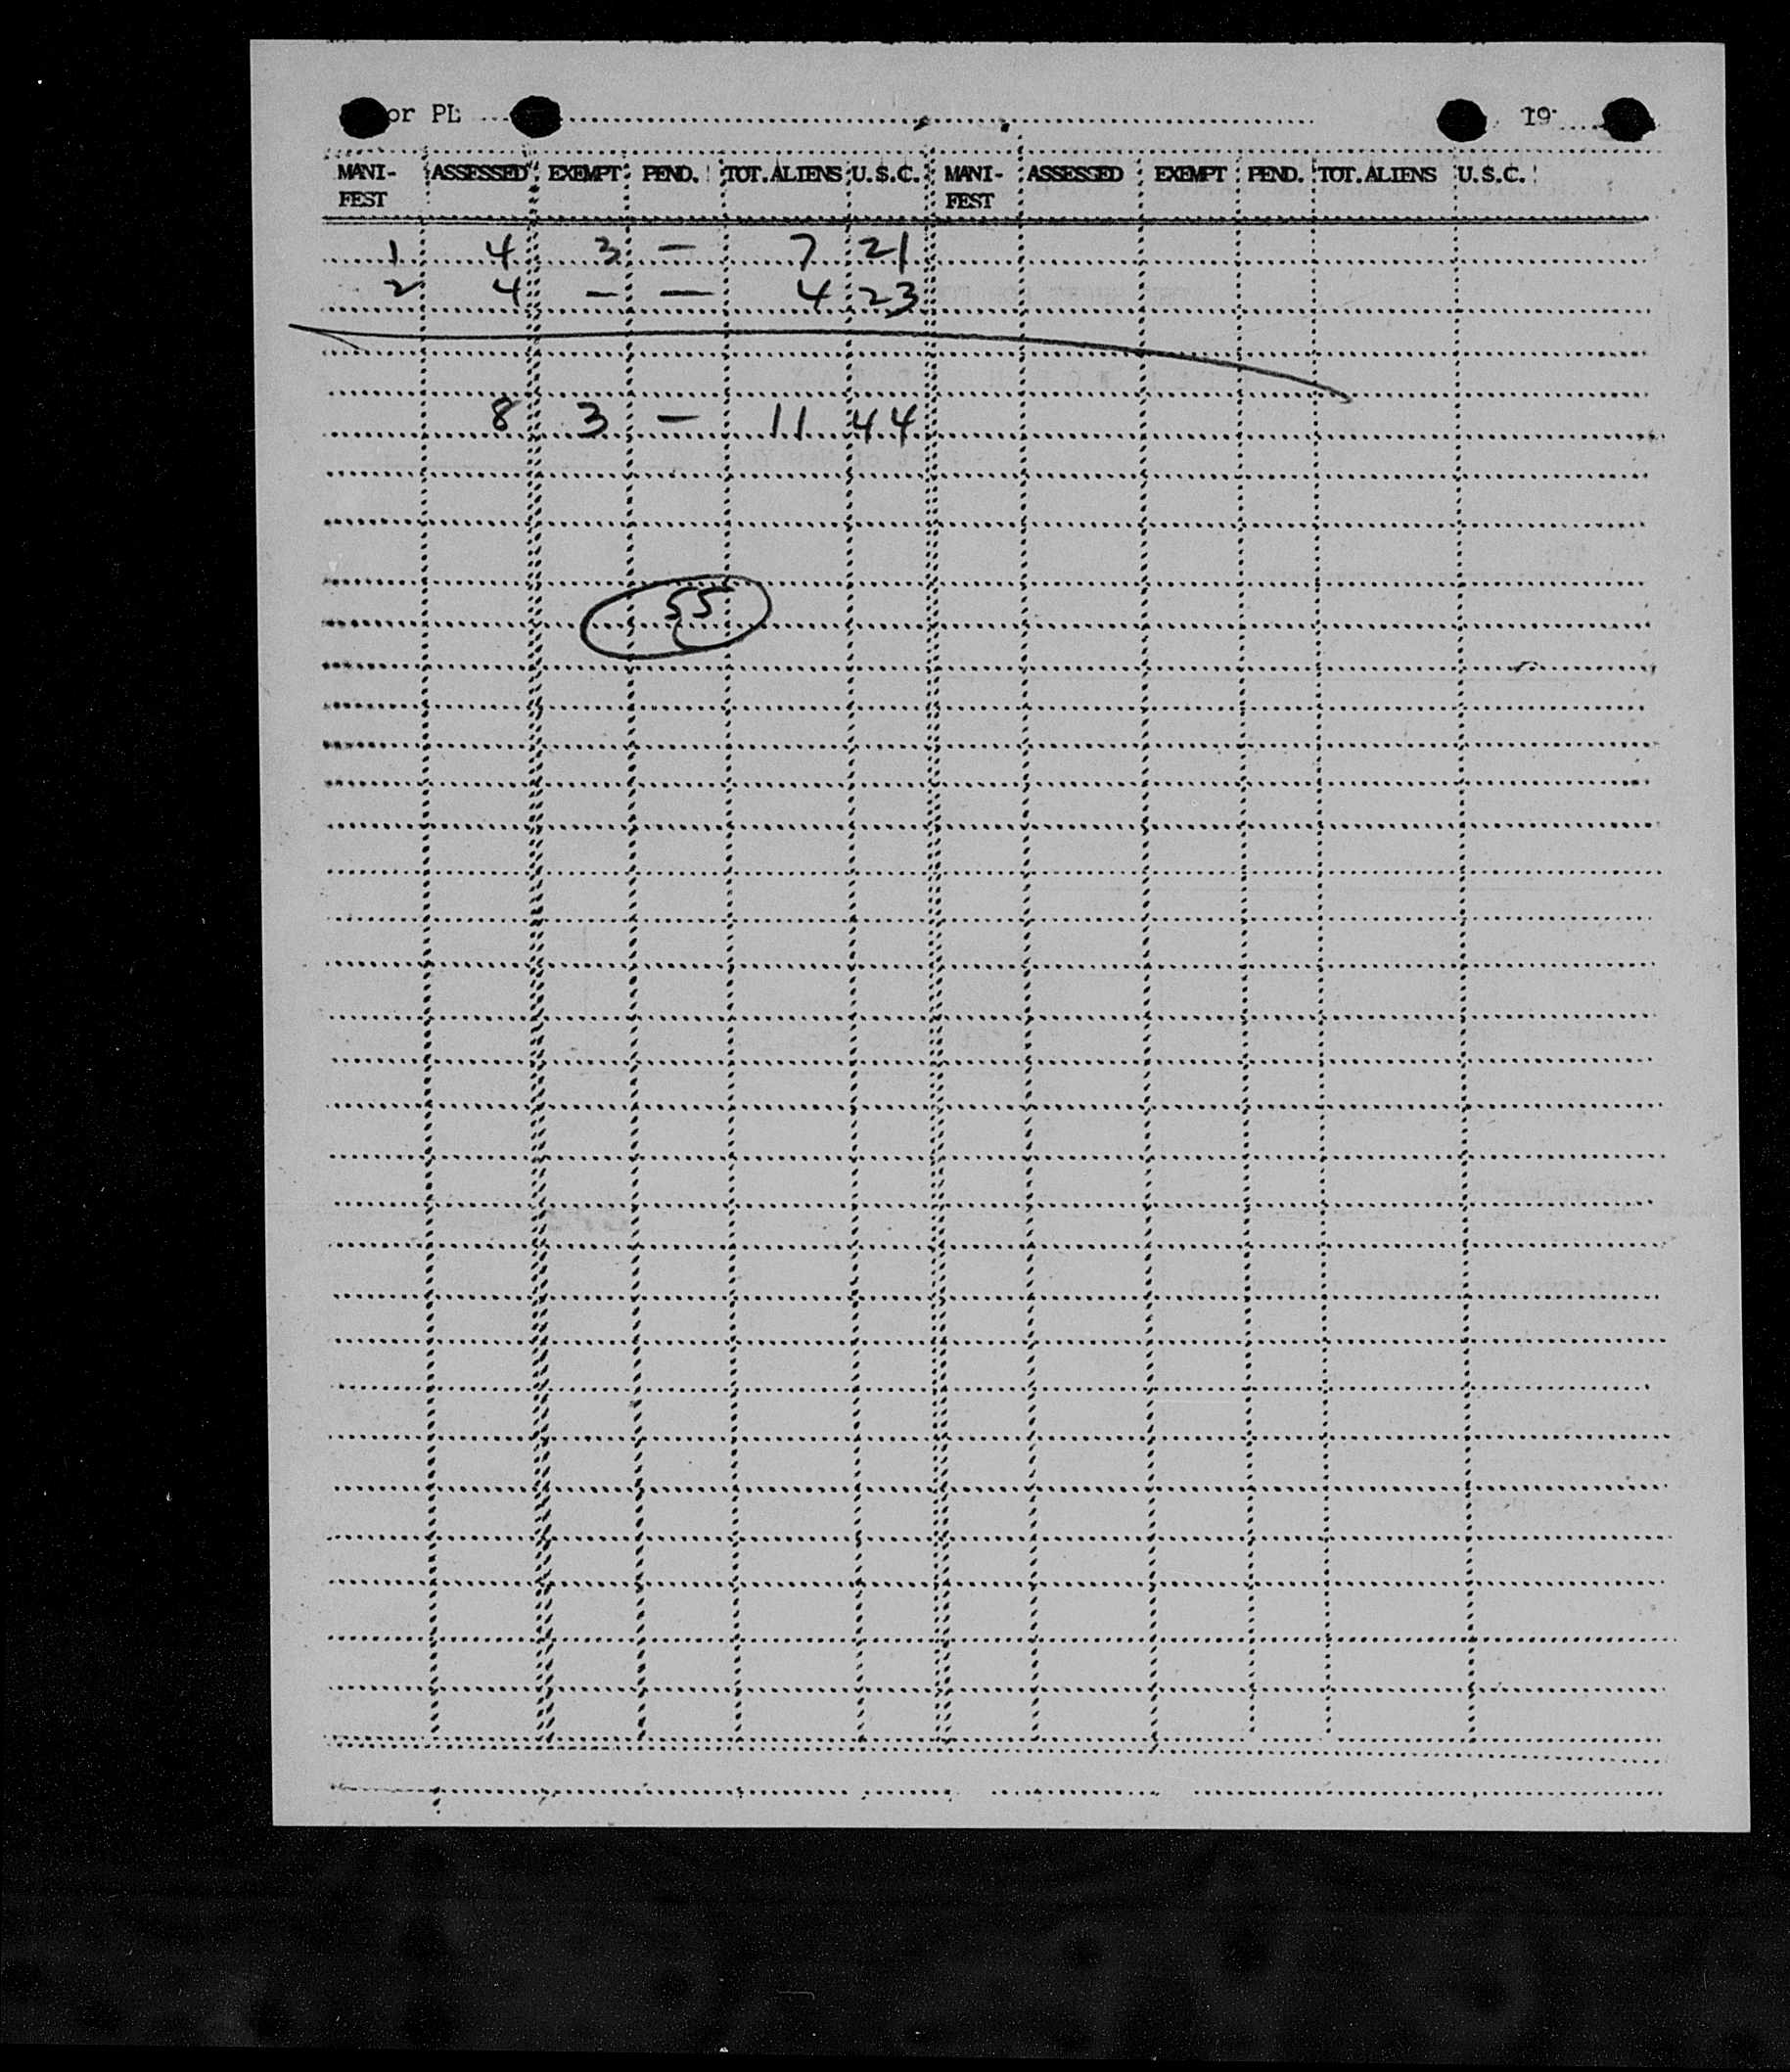 or PL 19
MANI- ASSESSED EXEMPT PEND. TOT.ALIENS U.S.C. MANI- ASSESSED EXEMPT PEND. TOT.ALIENS U.S.C.
FEST FEST
1 4 3 — 7 21
2 4 — — 4 23
8 3 — 11 44
55